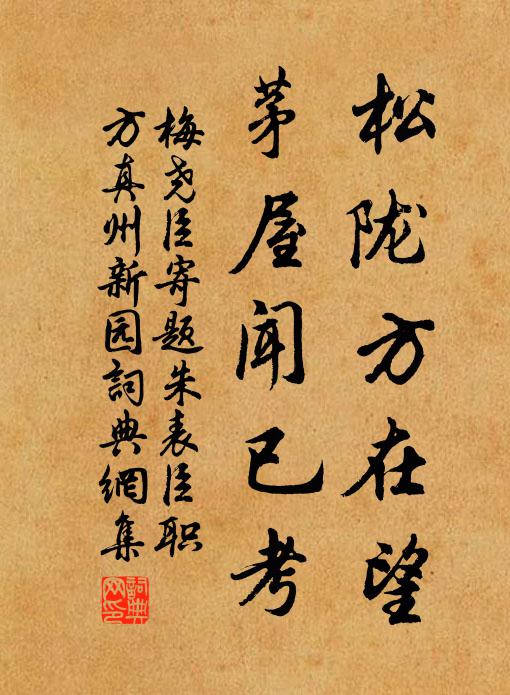 松陇方在望
茅屋闻已考
梅尧臣寄题朱表臣职
方真州新园詞典網集
詞典網印